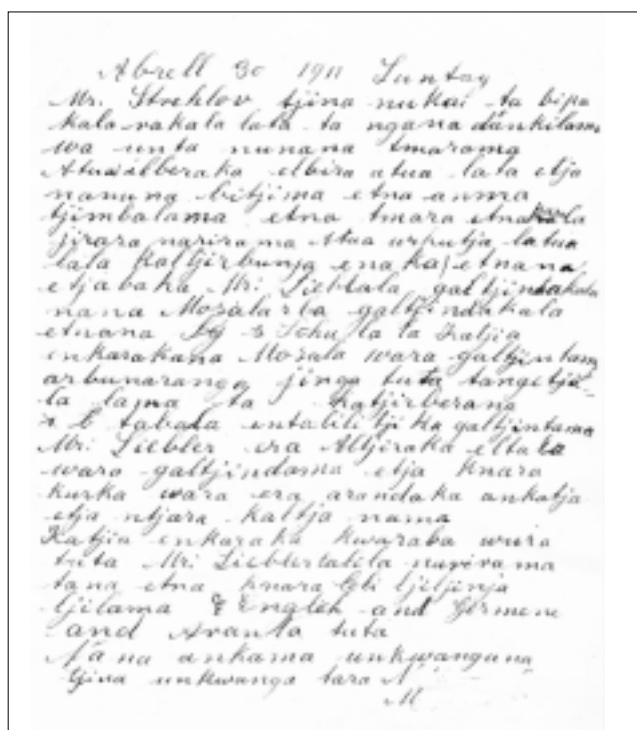 Abrell 30 1911 Suntag
Mr. Strehlov tjina nukai ta bipa
kala rakala lata ta ngana dankilama
wa unta nunana tmarama
Atua ilberaka elbira atua lata etja
nanuna bitjima etna anma
tjimbalama etna tmara etna
jirara narirama Atua urputja latua
lala Kaltjirbunja enaka etnana
etjabaka Mr. Lieblala galtjindakala
nana Mosalarba galtjindakala
etnana by s Schu la ta Katjia
inkarakana Mosala wara galtjintama
arbunaranga jinga tuta tangetja
la lama ta Katjirberana
r b tabala entalilitjika galtjintama
Mr. Liebler era Altjiraka elta
wara galtjindama etja knara
kurka wara era arandaka ankatja
etja ntjara kaltja nama
Katjia inkaraka kwaraba wura
tuta Mr. Lieblertalila narirama
tana etna knara Gli tjiljinja
tjilama English and Germene
and Aranta tuta
Nana ankama unkwangana
tjina unkwanga tara N
M